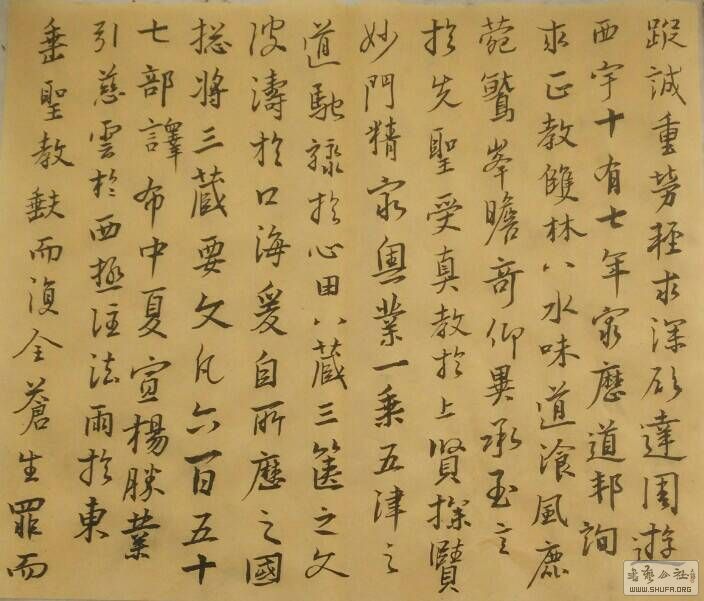 蹤誠重勞輕求深願達周遊
西宇十有七年窮歷道邦詢
求正教雙林八水味道飡風鹿
菀鷲峯瞻奇仰異承至言
於先聖受真教於上賢探賾
妙門精窮奧業一乘五律之
道馳驟於心田八藏三篋之文
波濤於口海爰自所歷之國
揔將三藏要文凡六百五十
七部譯布中夏宣揚勝業
引慈雲於西極注法雨於東
垂聖教缺而復全蒼生罪而
书艺公社
WWW.SHUFA.ORG